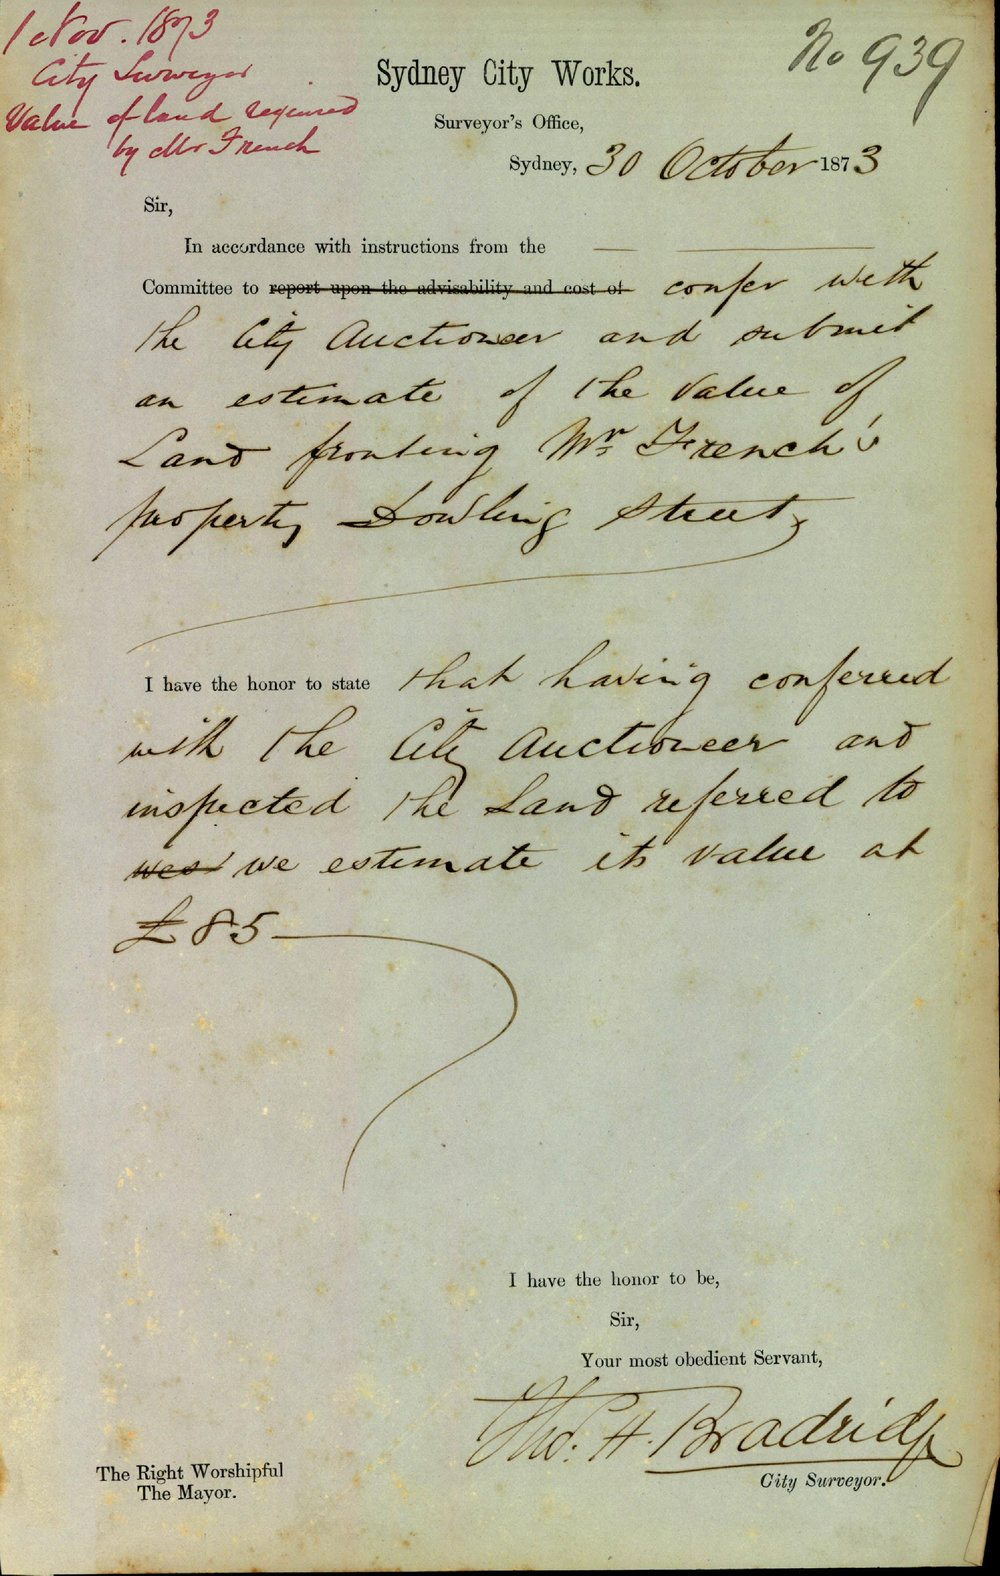 1 Nov. 1873
City Surveyor
Value of land required
by Mr French
No 939
Sydney City Works.
Surveyor's Office,
Sydney, 30 October 1873
Sir,
In accordance with instructions from the
Committee to report upon the advisability and cost of confer with
the City Auctioneer and submit
an estimate of the value of
Land fronting Mr French's
property Dowling Street,
I have the honor to state that having conferred
with the City Auctioneer and
inspected the Land referred to
we estimate its value at
£85
I have the honor to be,
Sir,
Your most obedient Servant,
Tho. H. Bradridge
City Surveyor.
The Right Worshipful
The Mayor.